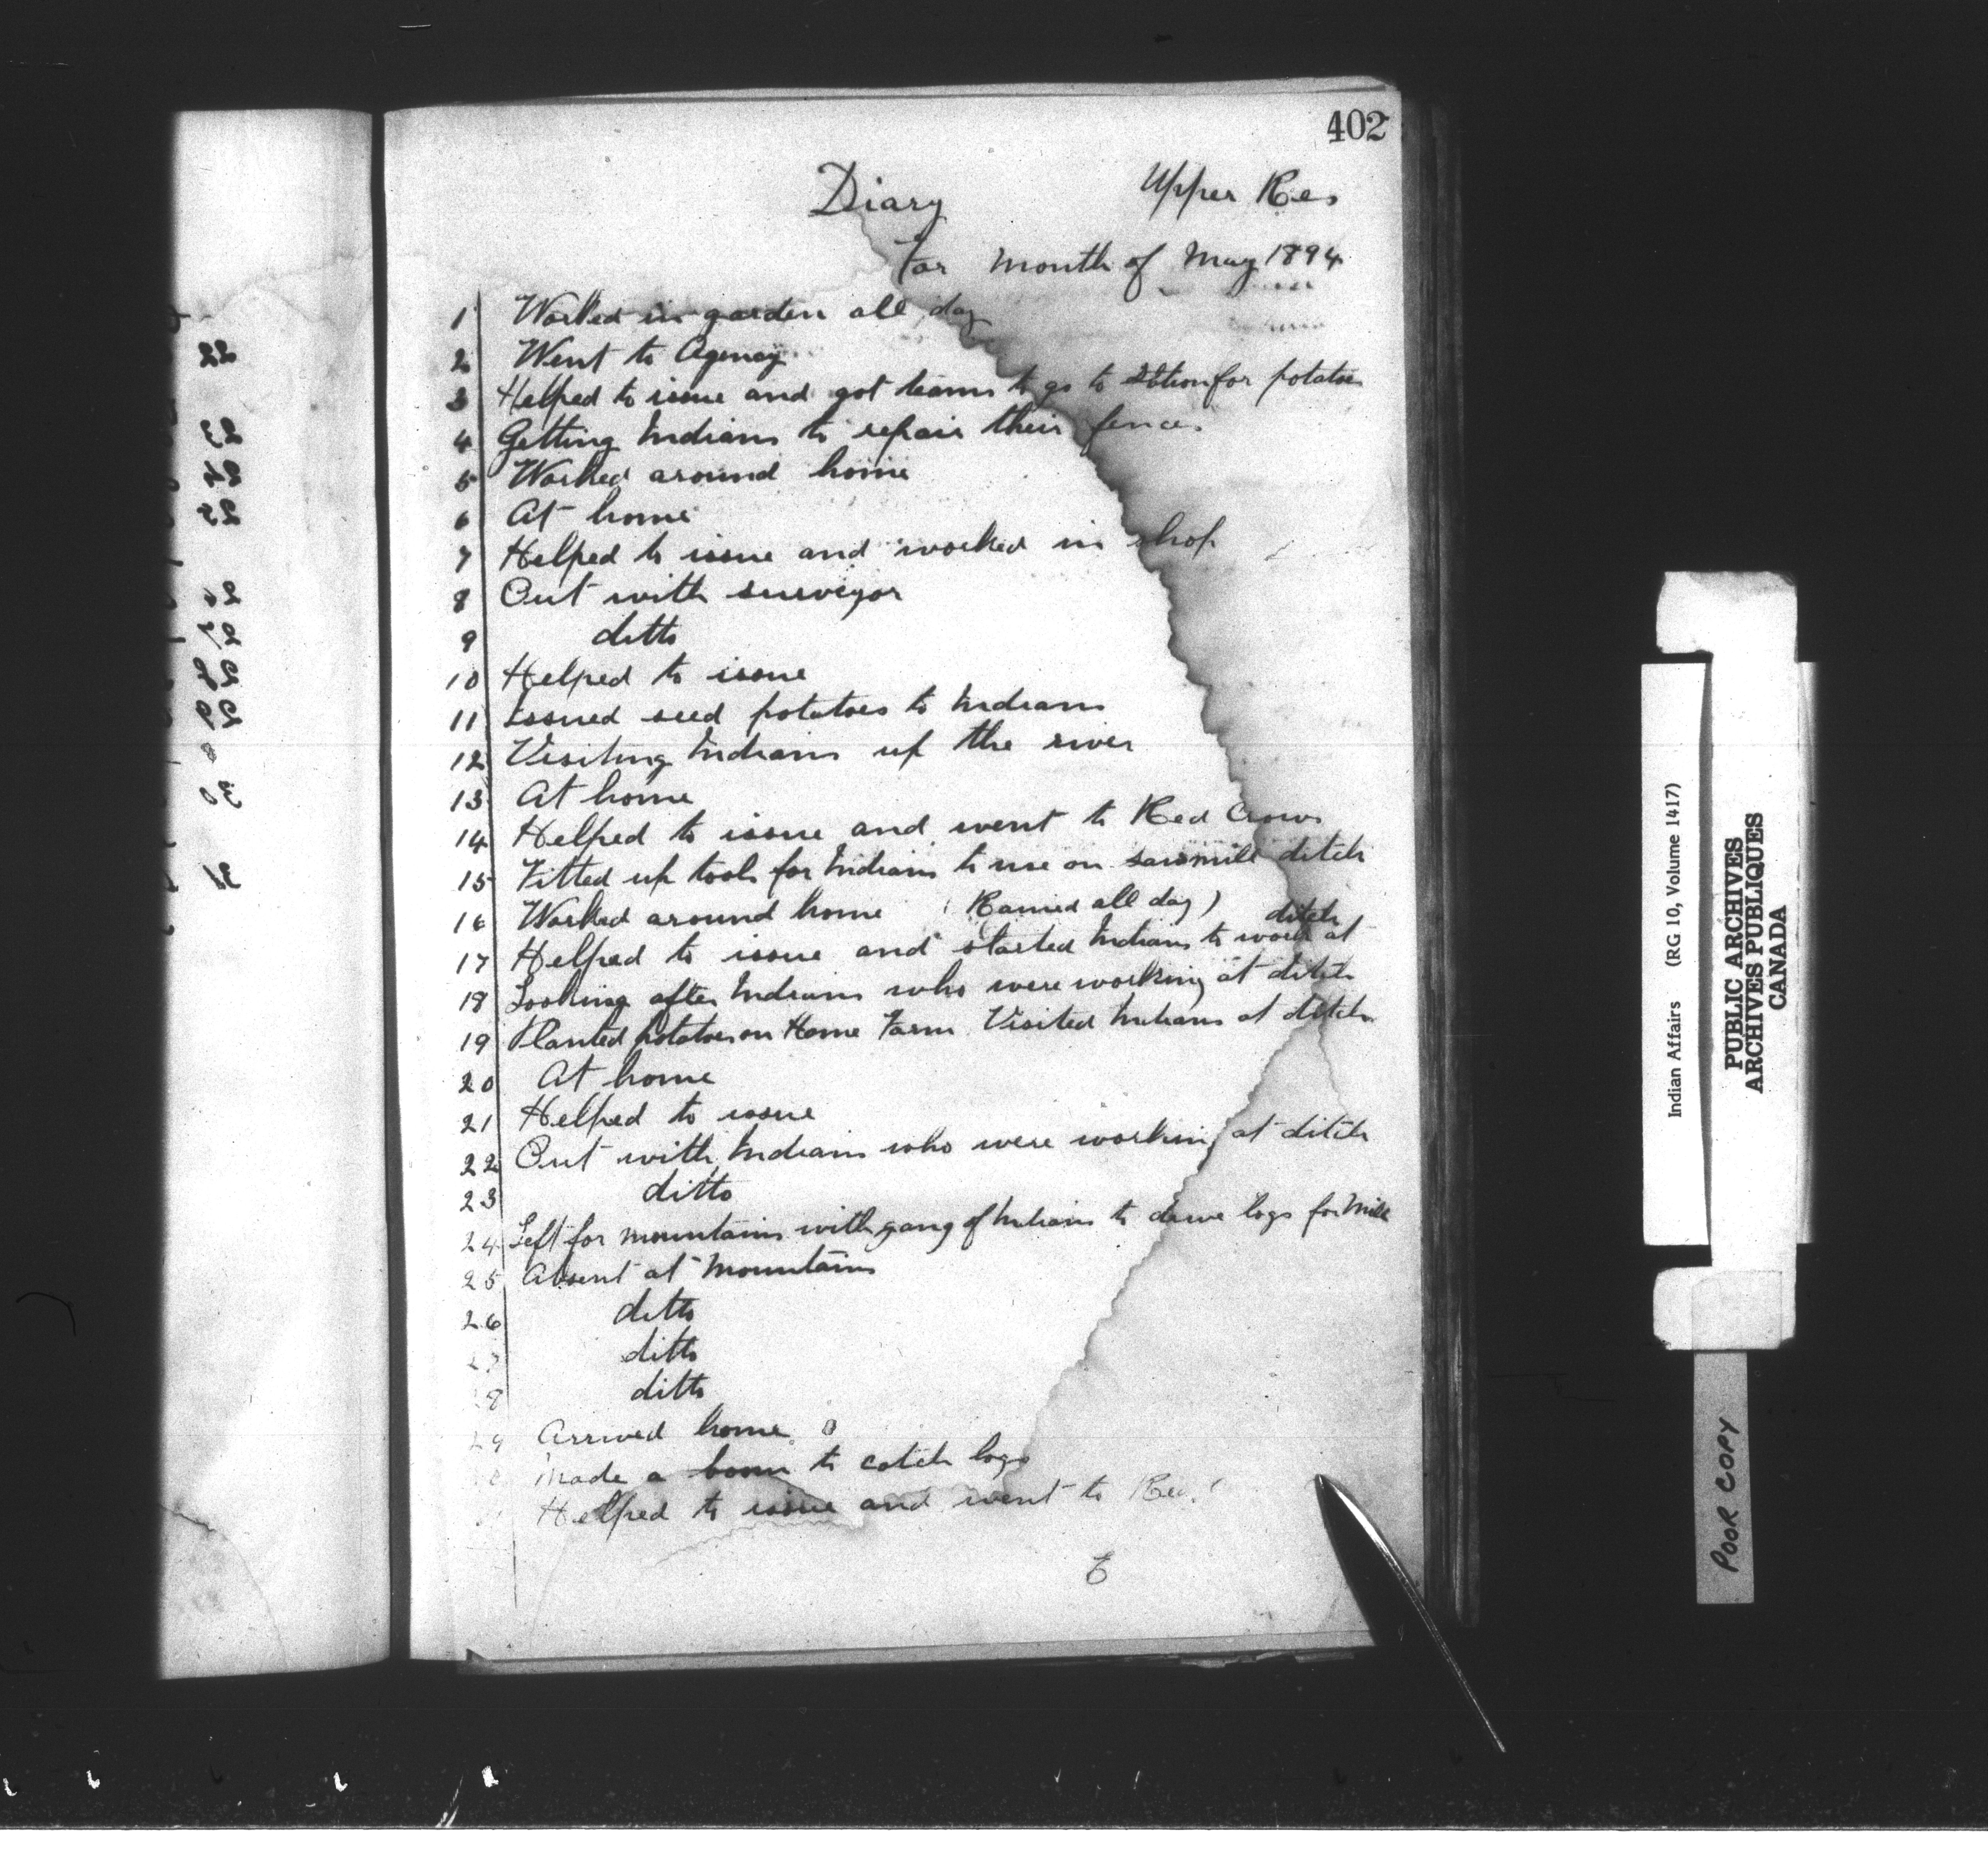 402
Diary Upper Res
For month of May 1894
1 Worked in garden all day
2 Went to Agency
3 Helped to issue and got teams to go to for potatoes
4 Getting Indians to repair their fences
5 Worked around home
6 At home
7 Helped to issue and worked in shop
8 Out with surveyor
9 ditto
10 Helped to issue
11 Issued seed potatoes to Indians
12 Visiting Indians up the river
13 At home
14 Helped to issue and went to Red Crows
15 Fitted up tools for Indians to use on sawmill ditch
16 Worked around home (Rained all day)
17 Helped to issue and started Indians to work at ditch
18 Looking after Indians who were working at ditch
19 Planted potatoes on Home Farm Visited Indians at ditch
20 At home
21 Helped to issue
22 Out with Indians who were working at ditch
23 ditto
24 Left for mountains with gang of Indians to drive logs for Mill
25 Absent at Mountains
26 ditto
27 ditto
28 ditto
29 Arrived home
Made a boom to catch logs
Helped to issue and went to Red
Indian Affairs (RG 10, Volume 1417)
PUBLIC ARCHIVES
ARCHIVES PUBLIQUES
CANADA
POOR COPY